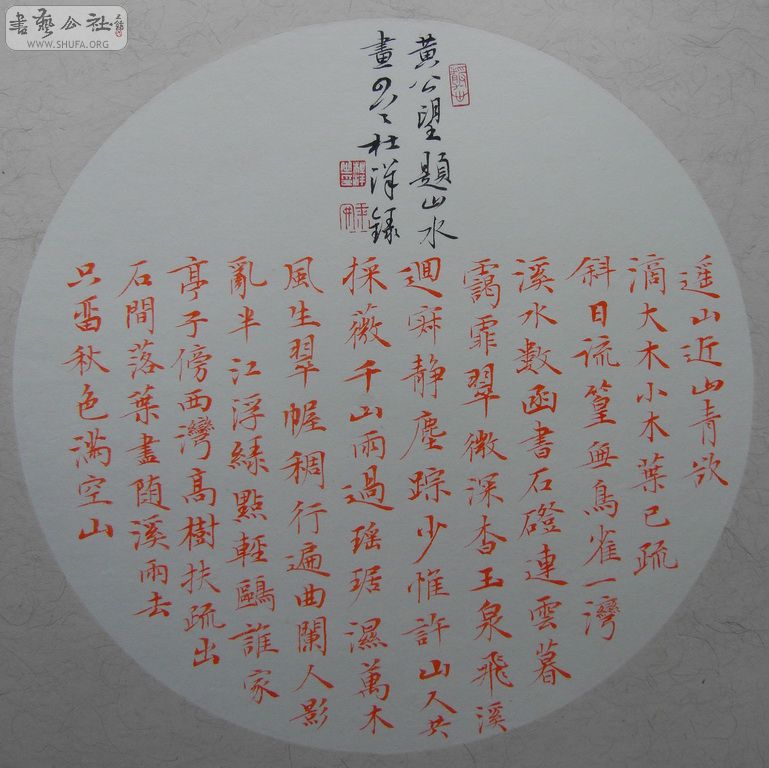 書藝公社
WWW.SHUFA.ORG
黄公望題山水
畫杜洋録
遥山近山青欲
滴大木小木葉已疏
斜日疏篁無鳥雀一灣
溪水數函書石磴連雲暮
靄霏翠微深杳玉泉飛溪
迴寂静塵踪少惟許山人共
採薇千山雨過瑶琚濕萬木
風生翠幄稠行遍曲闌人影
亂半江浮緑點輕鷗誰家
亭子傍西灣高樹扶疏出
石間落葉盡随溪雨去
只留秋色滿空山